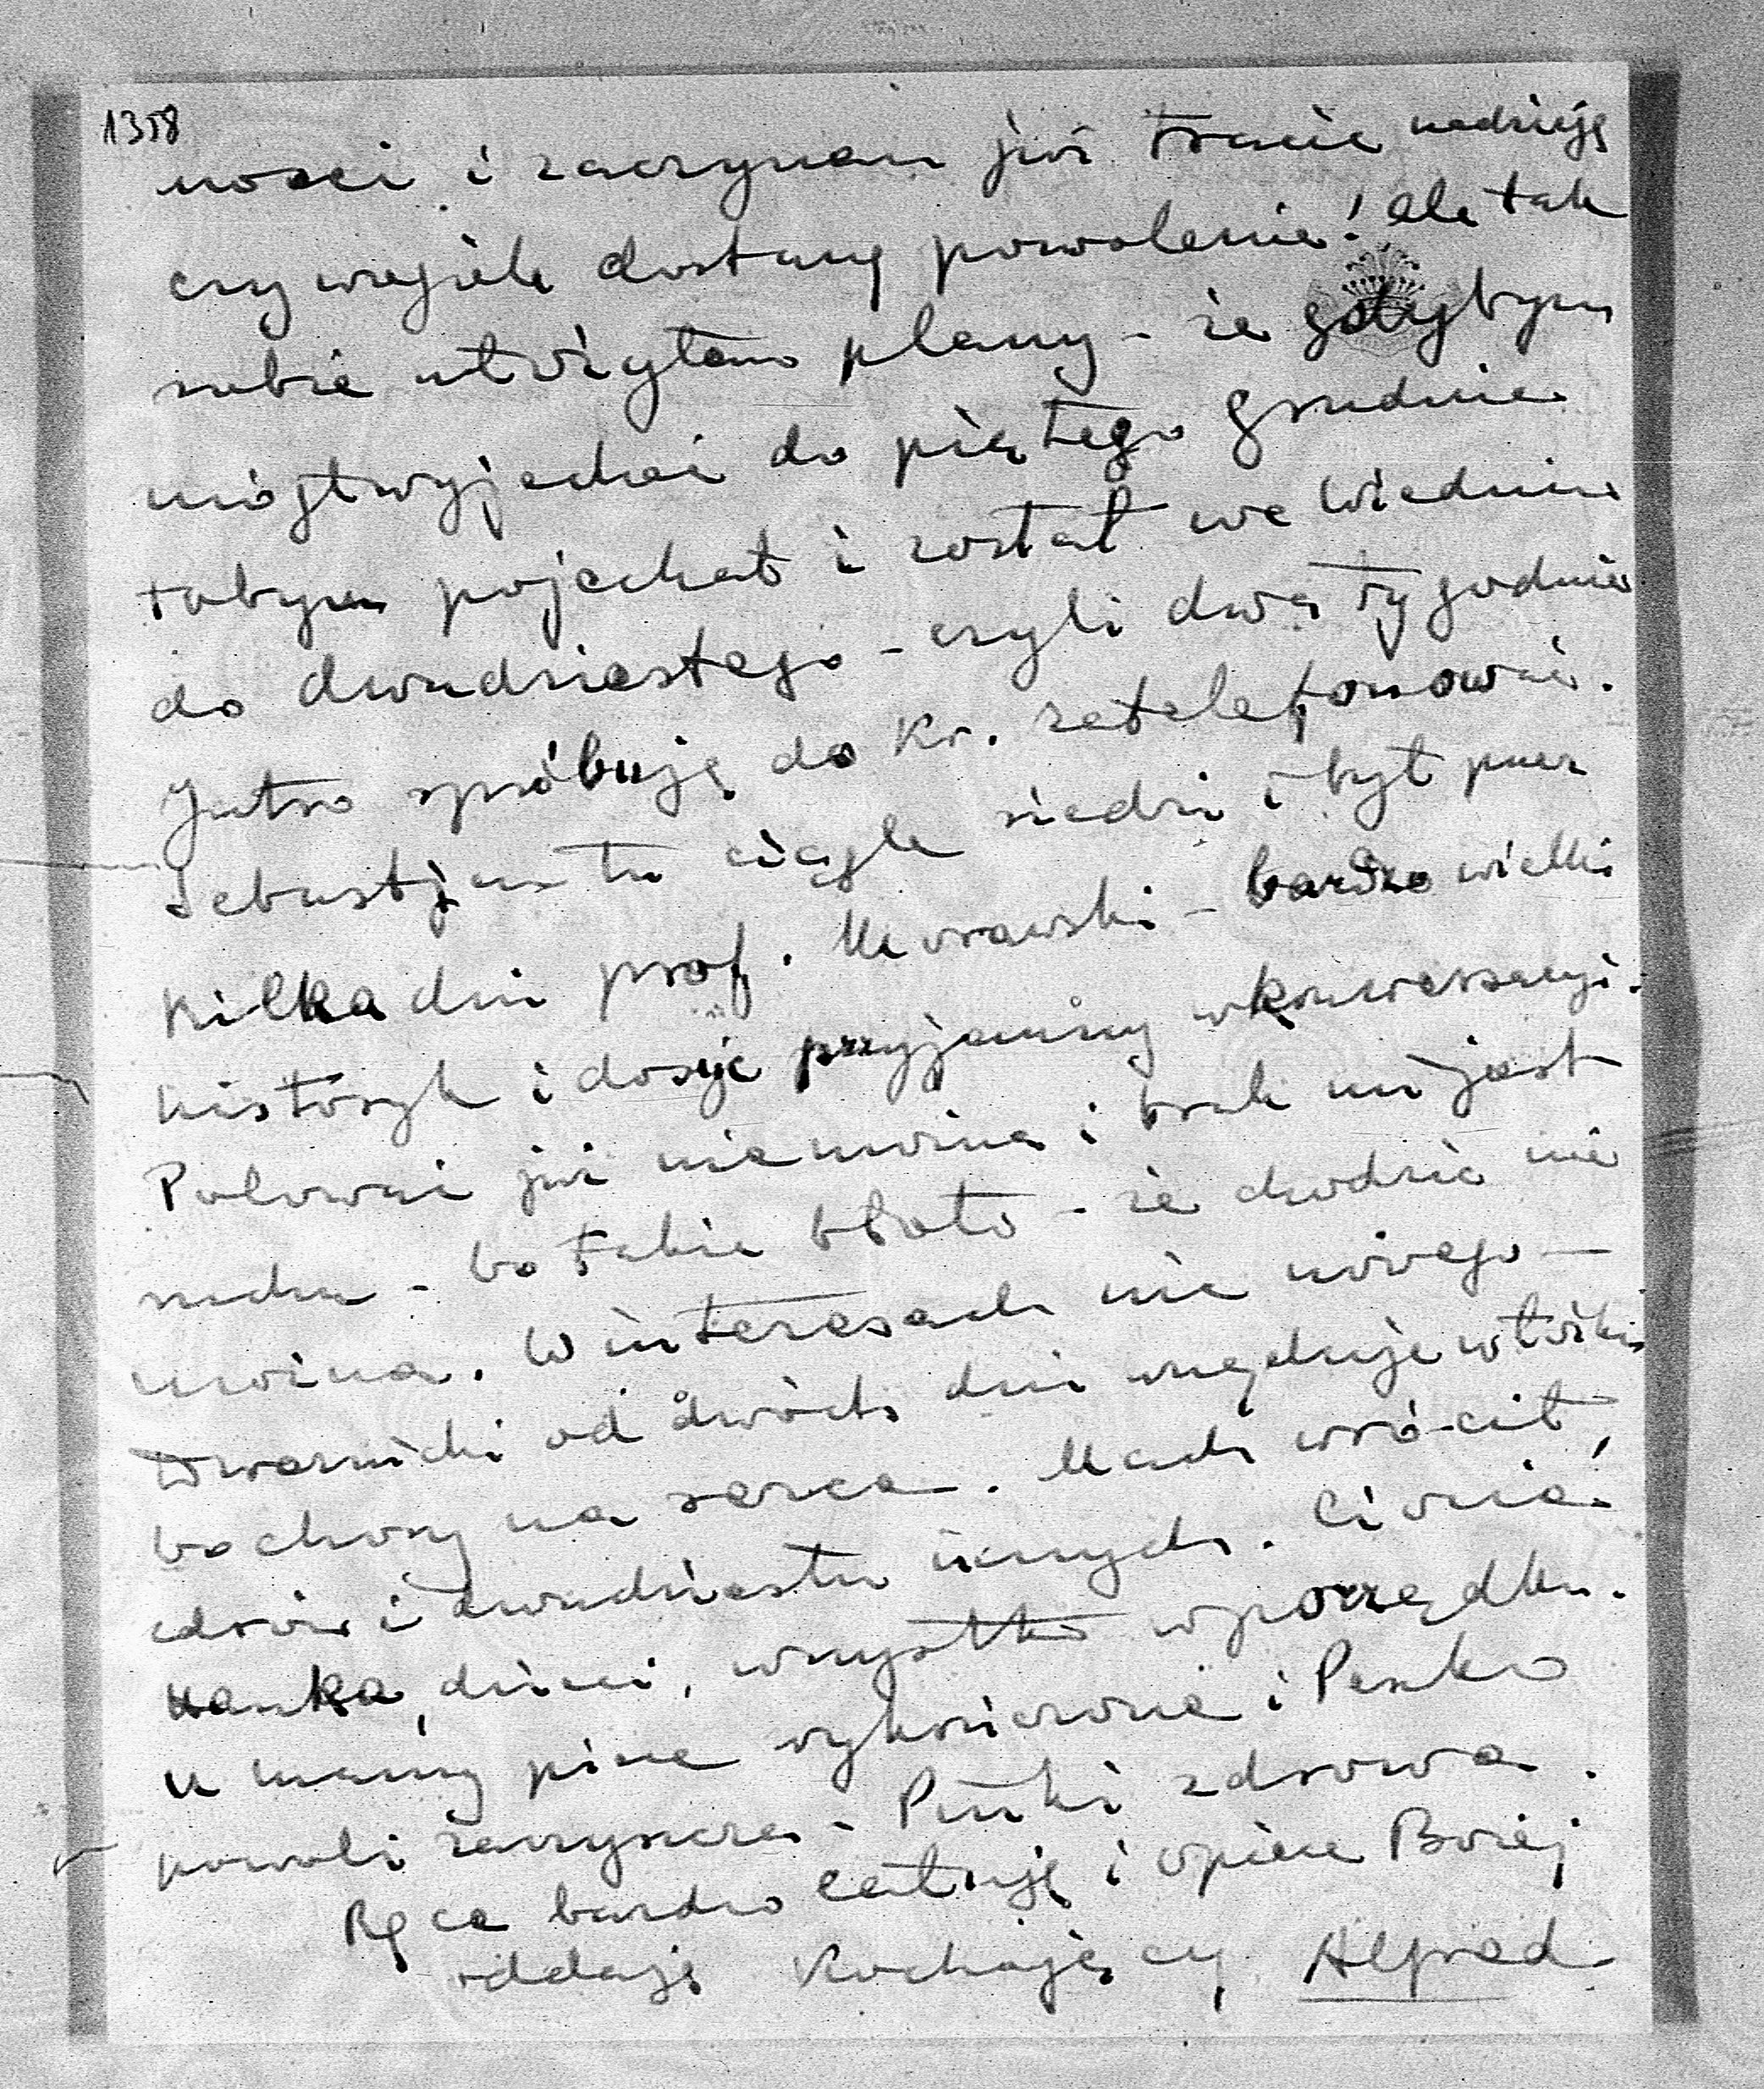 1358
ności i zaczynam już tracić nadzieję
czy wogóle dostanę pozwolenie! Ale tak
sobie ułożyłem plany - że gdybym
mógł wyjechać do piątego grudnia
tobym pojechał i został we Wiedniu
do dwudziestego - czyli dwa tygodnie
Jutro spróbuję do Kr. zatelefonować.
Sebastjan tu ciągle siedzi i był przez
kilka dni prof. Morawski - bardzo wielki
historyk i dosyć przyjemny w konwersacyi.
Polować już nie można i brak mi jest
ruchu - bo takie błoto - że chodzić nie
można. W interesach nic nowego —
Dwernicki od dwóch dni urzęduje w łóżku
bo chory na serce. Mach wrócił,
zdrów i dwudziestu innych.
Hanka, dzieci, wszystko w porządku.
u mamy piece wykończone i Peszko
powoli zawiesza. Pinki zdrowa.
Ręce bardzo całuję i opiece Bożej
oddaję Kochający Alfred